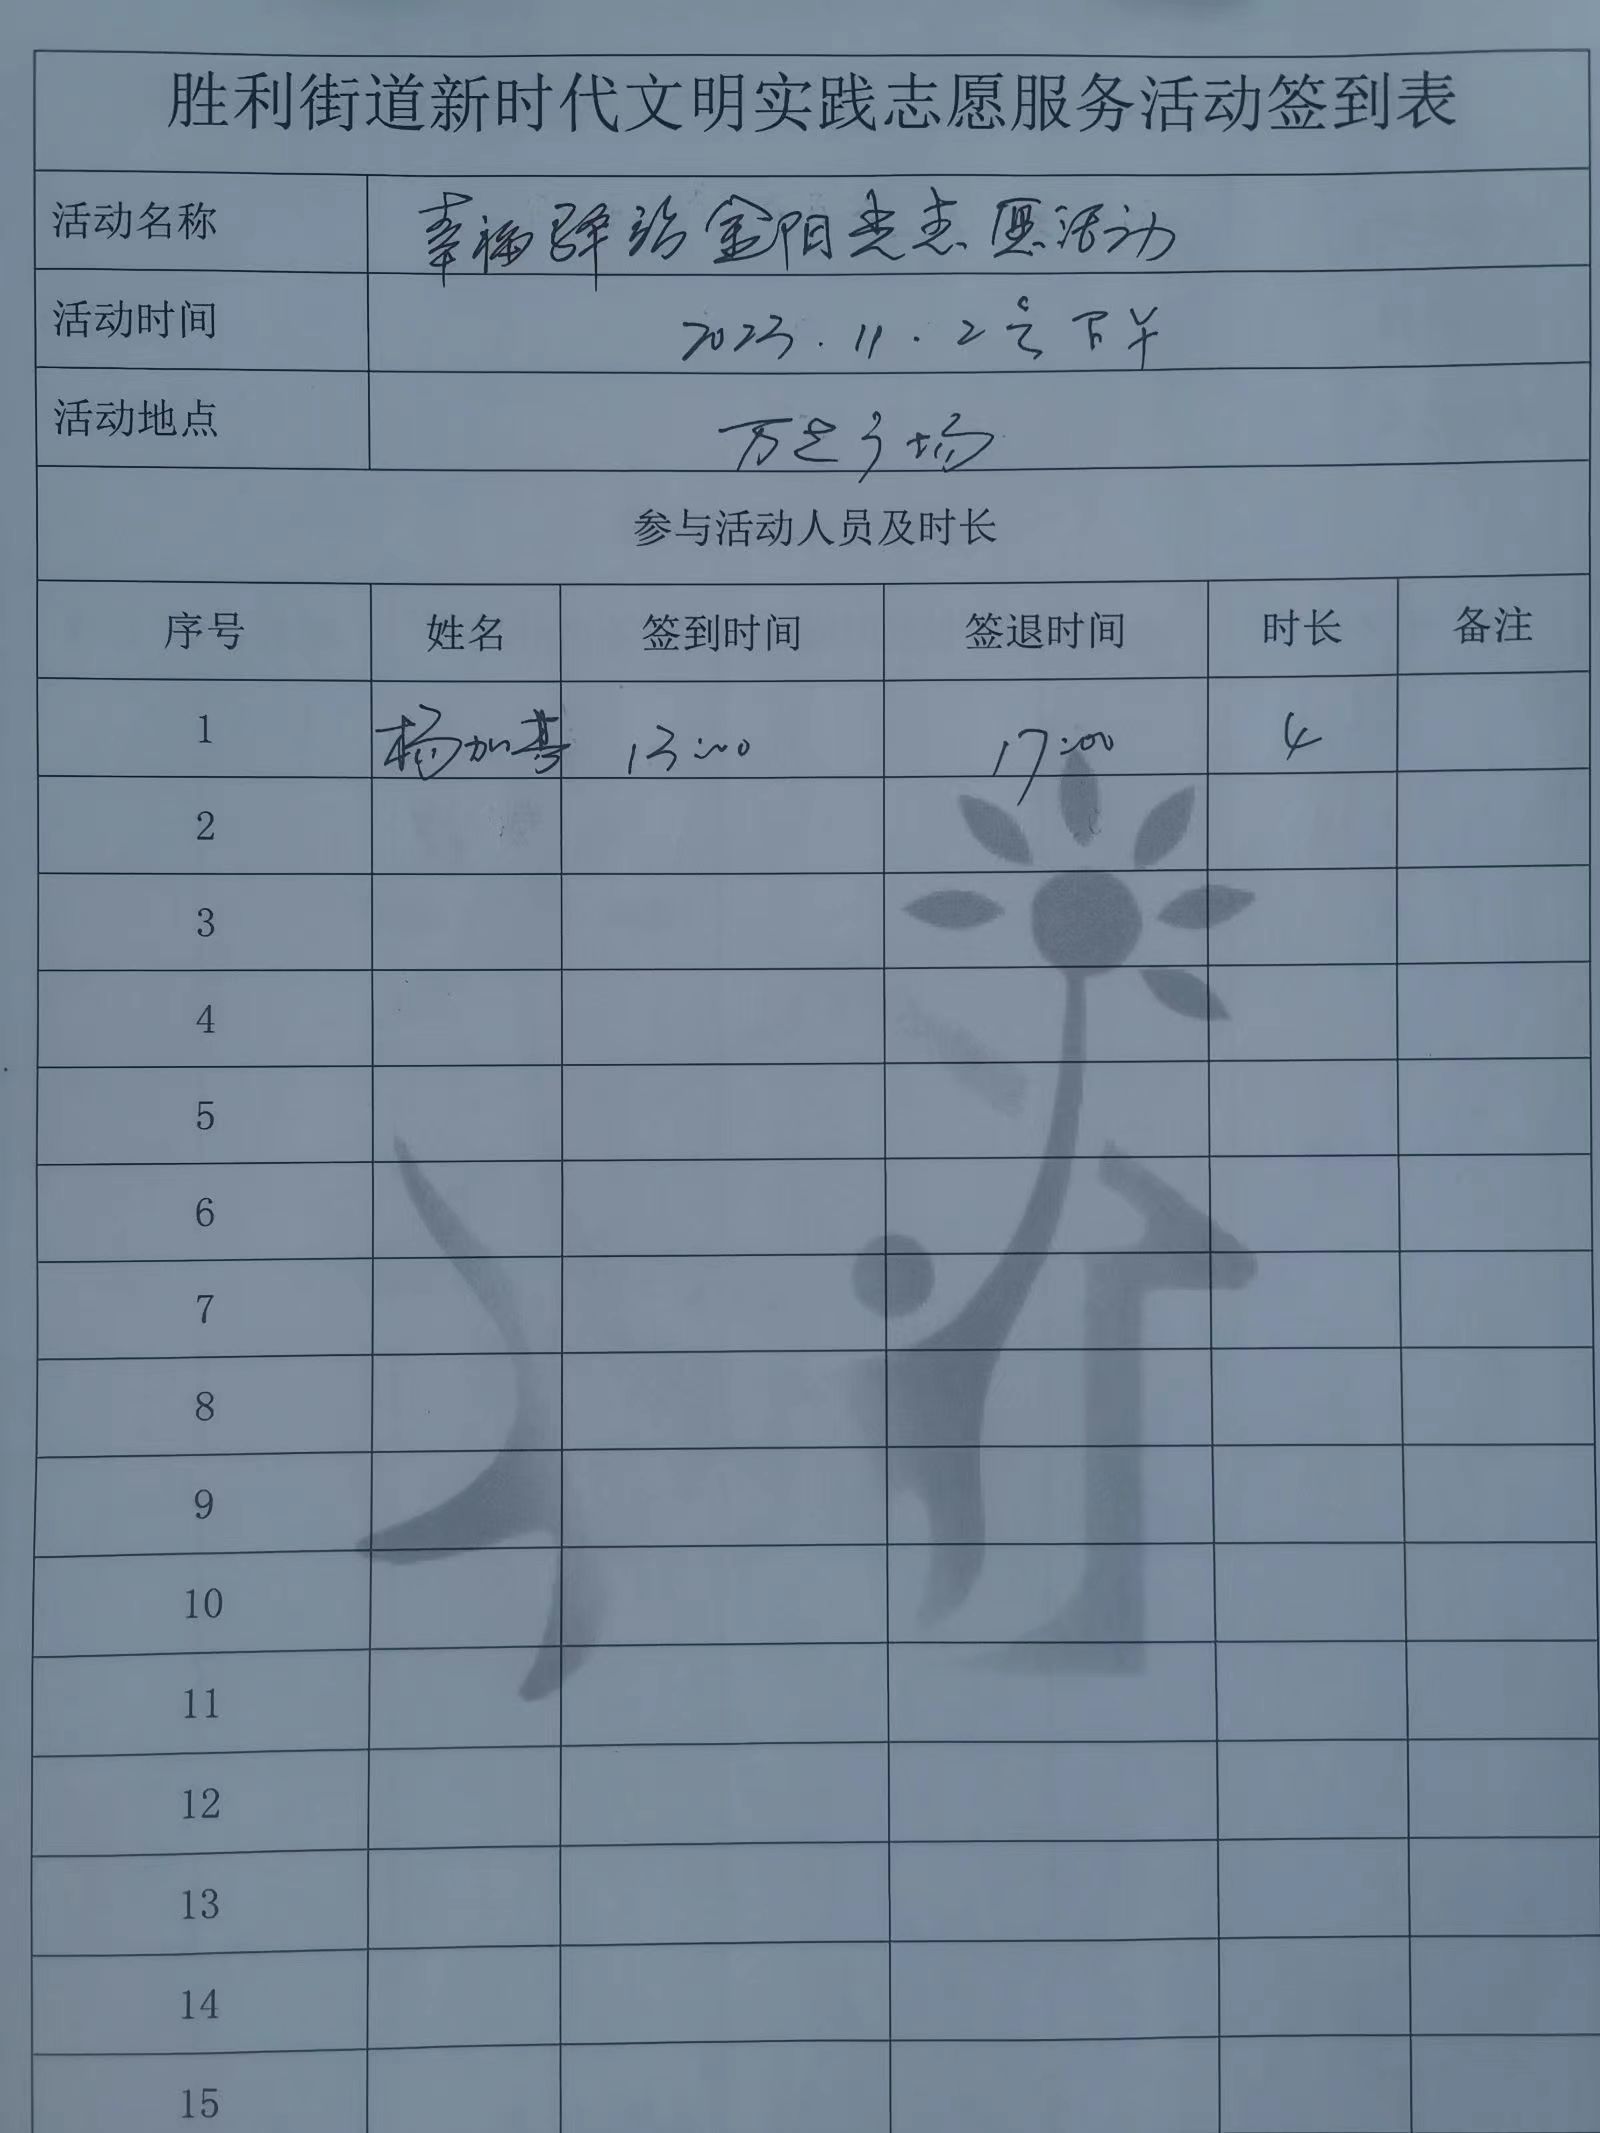 胜利街道新时代文明实践志愿服务活动签到表
活动名称 幸福驿站金阳光志愿活动
活动时间 2023.11.2号下午
活动地点 万达广场
参与活动人员及时长
序号 姓名 签到时间 签退时间 时长 备注
1 杨加 13:00 17:00 4
2
3
4
5
6
7
8
9
10
11
12
13
14
15